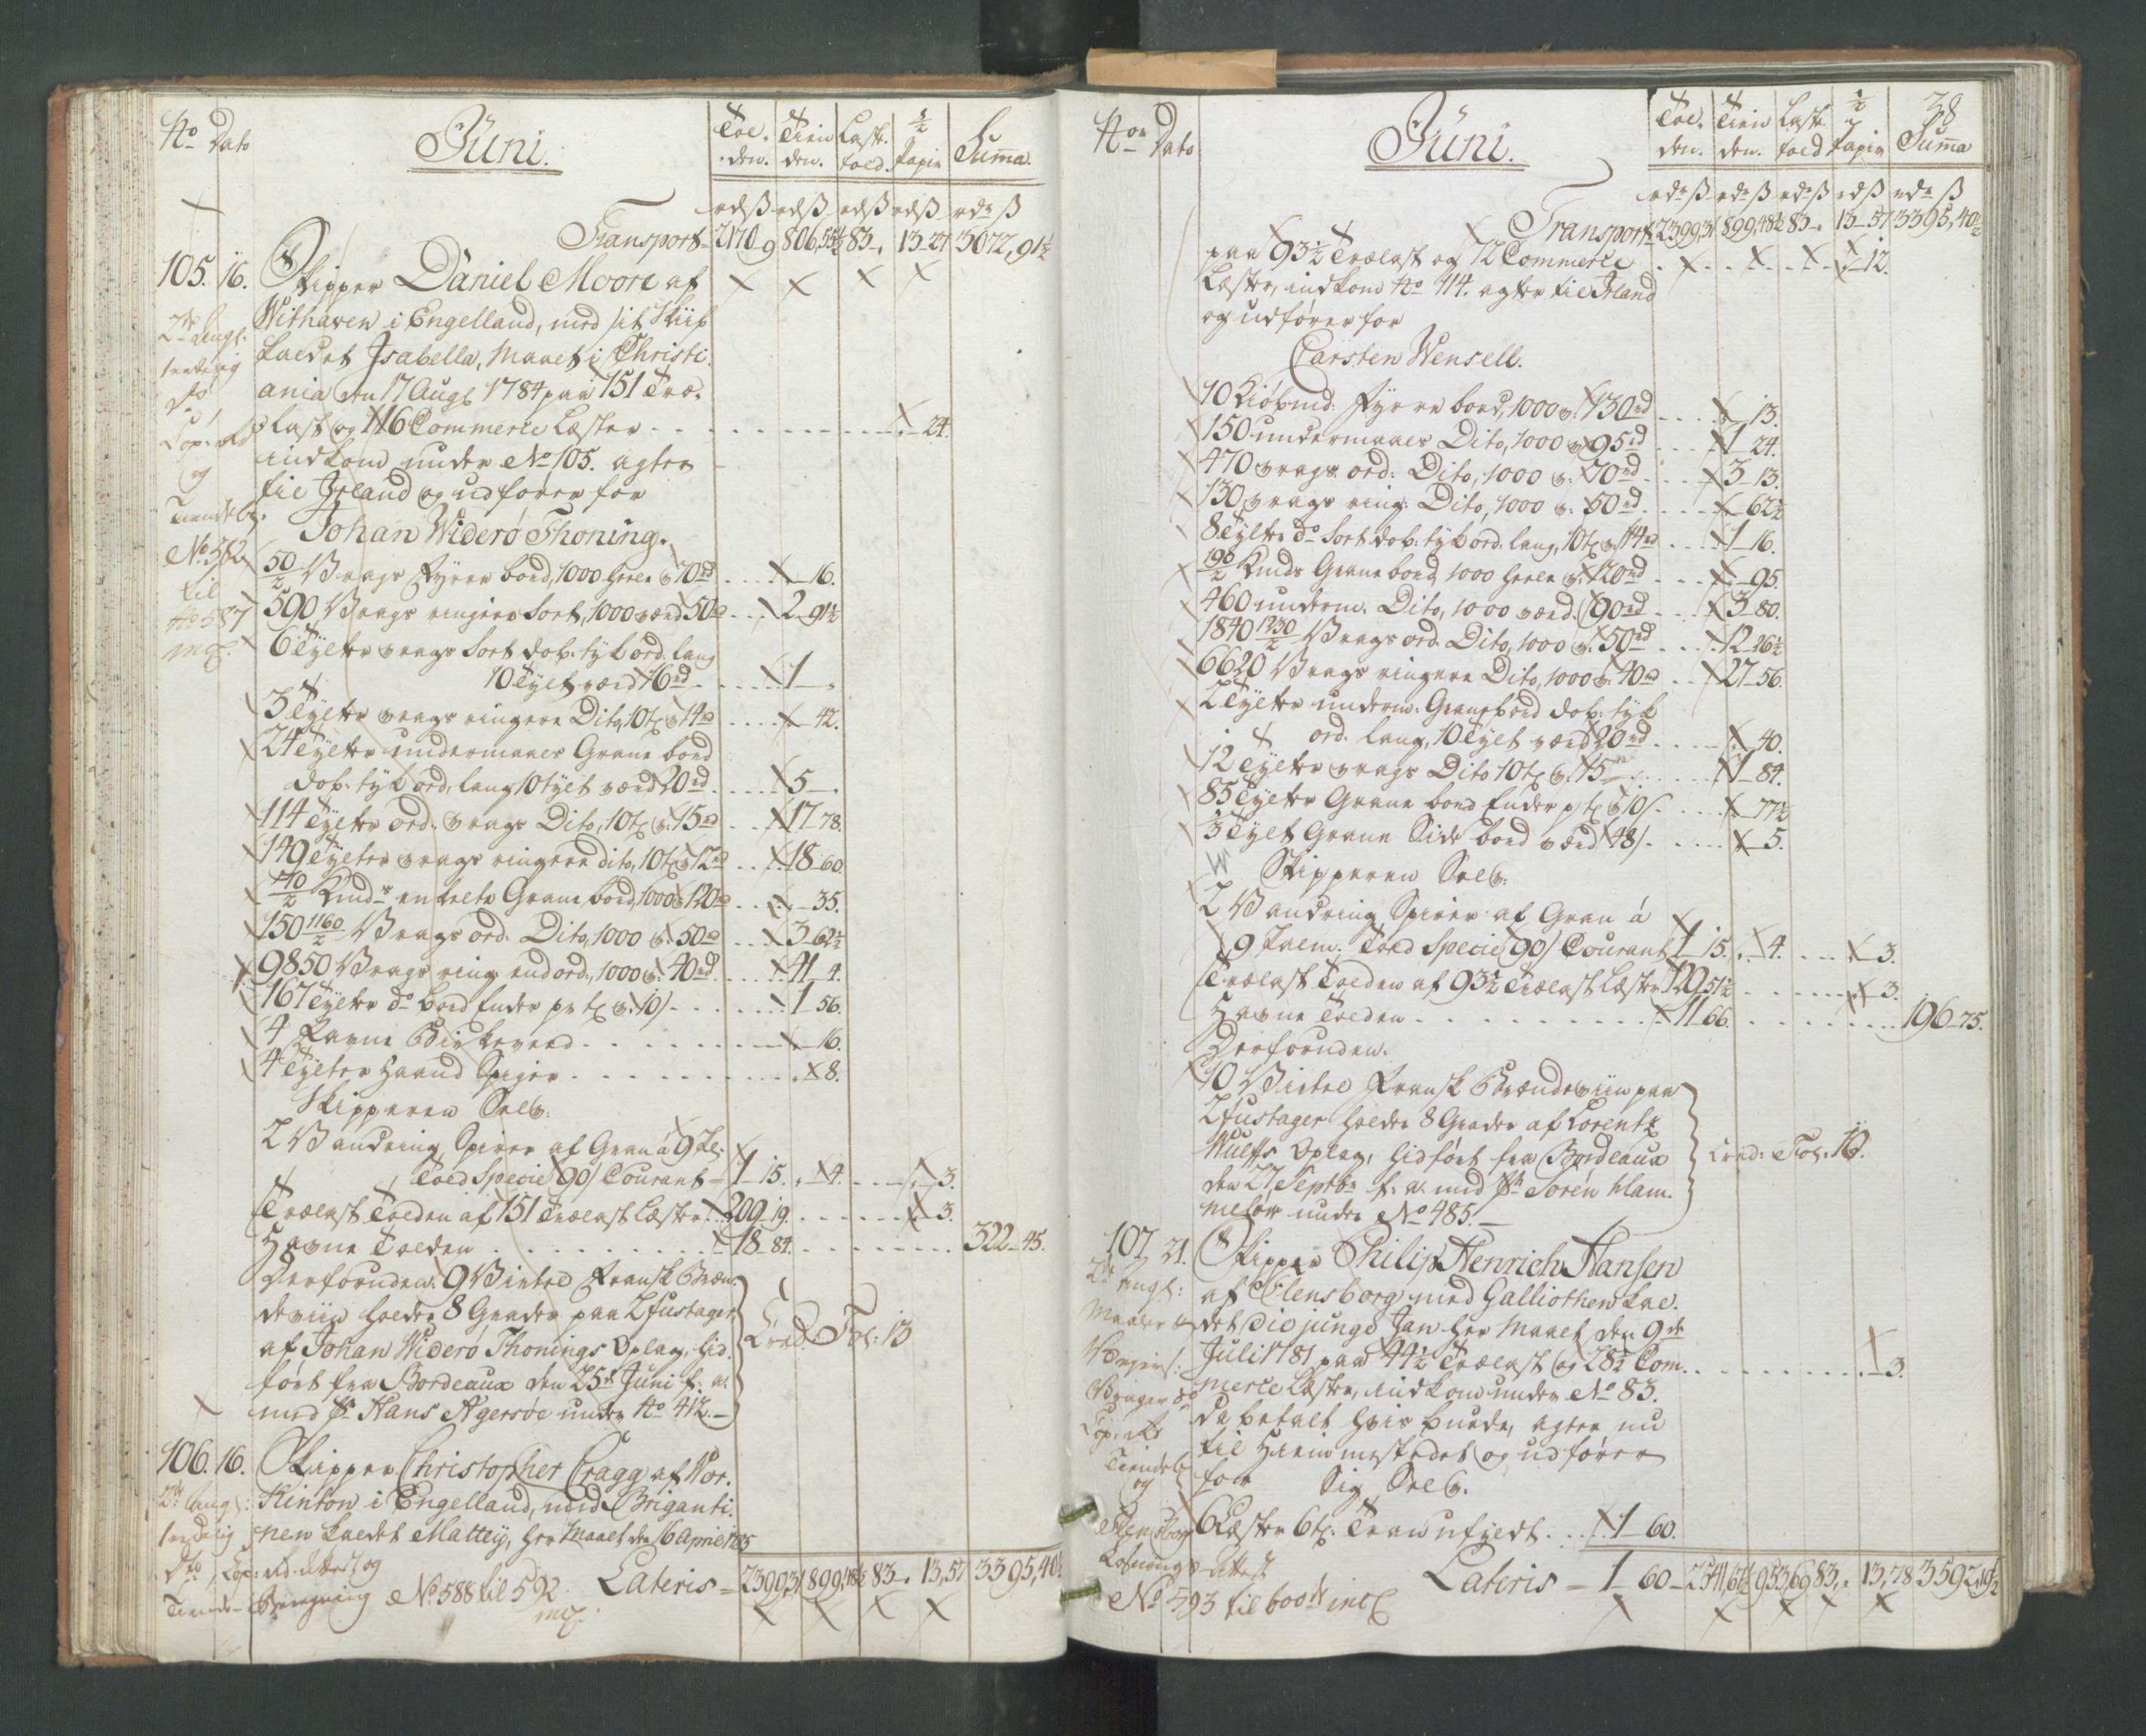 No Dato
Juni.
Toldden. Tienden. Laste told. ½ Papir Suma
rd ß rd ß rd ß rd ß rdr ß
Transport 2170 9 806,55½ 83 - 13 27 3072, 91½
105. 16. Skipper Daniel Moore af
Withaven i Engelland, med sit Skiib
kaldet Isabella, Maalt i Christi
ania den 17 Augs 1784 paa 151 Træ,
Last og 116 Commerce Læster - 24.
indkom under No 105. agter
til Irland og udfører for
Johan Widerø Thoning.
No 582
til
No 587
50/2 Vrags Fyrre bord, 1000 heele v 70rd - 16.
590 Vrags ringere Sort, 1000 værd 50rd 2 91½
6 Tylter vrags Sort dob: tyk ord. lang
10 Tylt værd 16rd 1 -
3 Tylter vrags ringere Dito, 10 t v 14rd - 42.
24 Tylter undermaals Grane bord
dob: tyk ord, lang 10 tylt værd 20rd 5 -
114 Tylter ord: vrags Dito, 10 t v: 15rd 17 78.
149 Tylter vrags ringere dito, 10 t v 12rd 18 60.
70/2 Knudr enkelte Grane bord, 1000 v 120rd - 35.
150 1160/2 Vrags ord. Dito, 1000 v. 50rd 3 62½
9850 Vrags ring: end ord., 1000 v. 40rd 41 4.
167 Tylter do bord Ender pr t v: 10ß 1 56.
4 Favne Birkeveed - 16.
4 Tylter Haand Spiger - 8.
Skipperen Selv:
2 Vandring Spirer af Gran á 9 Pl:
Told Specie 90ß Courant 1 15. - 4. - 3.
Trælast Tolden af 151 Trælast Læster 209 19. - 3.
Havne Tolden 18 84. 322 45.
Derforuden. 9 Viertel Fransk Bræn,
deviin holder 8 Grader paa 2 fustager
af Johan Widerø Thonings Oplag, hid,
ført fra Bordeaux den 25de Juni f: a:
med Sr Hans Agersøe under No 412.
Cred: Fol: 13
106. 16. Skipper Christopher Cragg af Wor,
kinton i Engelland, med Briganti,
nen kaldet Mattey, her Maalt den 16 April 1785
No 588 til 592
Lateris 2399 31 899 48½ 83 - 13, 57 3395, 40½
38
No Dato
Juni.
Toldden. Tienden. Laste told ½ Papir Suma
rdr ß rdr ß rdr ß rd ß rdr ß
Transport 2399,31 899,48½ 83 - 13 57 3395, 40½
paa 93½ Trælast og 72 Commerce - 12.
Læster, indkom No 114. agter til Irland
og udfører for
Carsten Wensell.
10 Kiøbmd: Fyrre bord, 1000 v. 130rd - 13.
150 undermaals Dito, 1000 v 95rd 1 24.
470 vrags ord: Dito, 1000 v. 70rd 3 13.
130 vrags ring: Dito, 1000 v: 50rd - 62½
8 Tylter do Sort dob: tyk ord. lang, 10 t v: 14rd 1 16.
190/2 Kmds Grane bord, 1000 heele v: 120rd - 95.
460 underm. Dito, 1000 værd. 90rd 3 80.
1840 1230/2 Vrags ord. Dito, 1000 v. 50rd 12 26½
6620 Vrags ringere Dito, 1000 v. 40rd 27 56.
2 Tylter underm: Granebord dob: tyk
ord. lang, 10 Tylt værd 20rd - 40.
12 Tylter vrags Dito 10 t v. 15rd 1 84.
85 Tylter Grane bord Ender p t v 10ß - 77½
3 Tylt Grane Side bord værd 48ß - 5.
Skipperen Selv:
2 Vandring Spirer af Gran á
9 Palm: Told Specie 90ß Courant 1 15. - 4. - 3.
Trælast Tolden af 93½ Trælast Læster 129 51½ - 3.
Havne Tolden 11 66. 196 75.
Derforuden.
10 Viertel Fransk Brændeviin paa
2 fustager holder 8 Grader af Lorentz
Wulffs Oplag, hidført fra Bordeaux
den 27 Septbr f: a: med Sr Søren Ham,
meløv under No 485.
Cred: Fol: 10.
107. 21. Skipper Philip Henrich Hansen
af Flensborg med Galliothen kal,
det Die junge Jan her Maalt den 9de
Juli 1781 paa 44½ Trælast og 28½ Com - 3.
merce Læster, indkom under No 83.
da betalt hvis burde, agter nu
til Hiemmestedet og udfører
for Sig Selv.
6 Læster 6 t: Tran ufyldt. 1 60.
Lateris 1 60 2541,67½ 953,69 83,- 13,78 3592,19½
No 593 til 600 incl